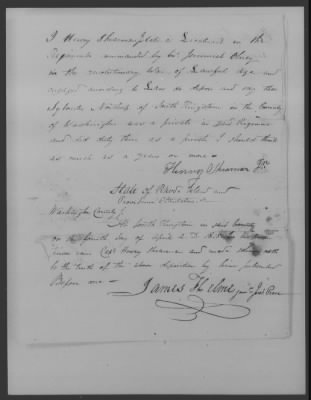 I Henry Sherman late a Lieutenant in the
Regiment commanded by Col. Jeremiah Olney
in the revolutionary War of Lawful age and
engaged according to Law do depose and say that
Northup of South Kingstown in the County
of Washington was a private in said Regiment
and did duty there as a private I should think
as much as a year or more —
Henry Sherman
State of Rhode Island and
Providence Plantations
Washington County
At South Kingstown in said County
on the fourth day of April A. D.
came Capt Henry Sherman and made oath
to the truth of the above deposition by him subscribed
Before me —
James Helme Just Peace